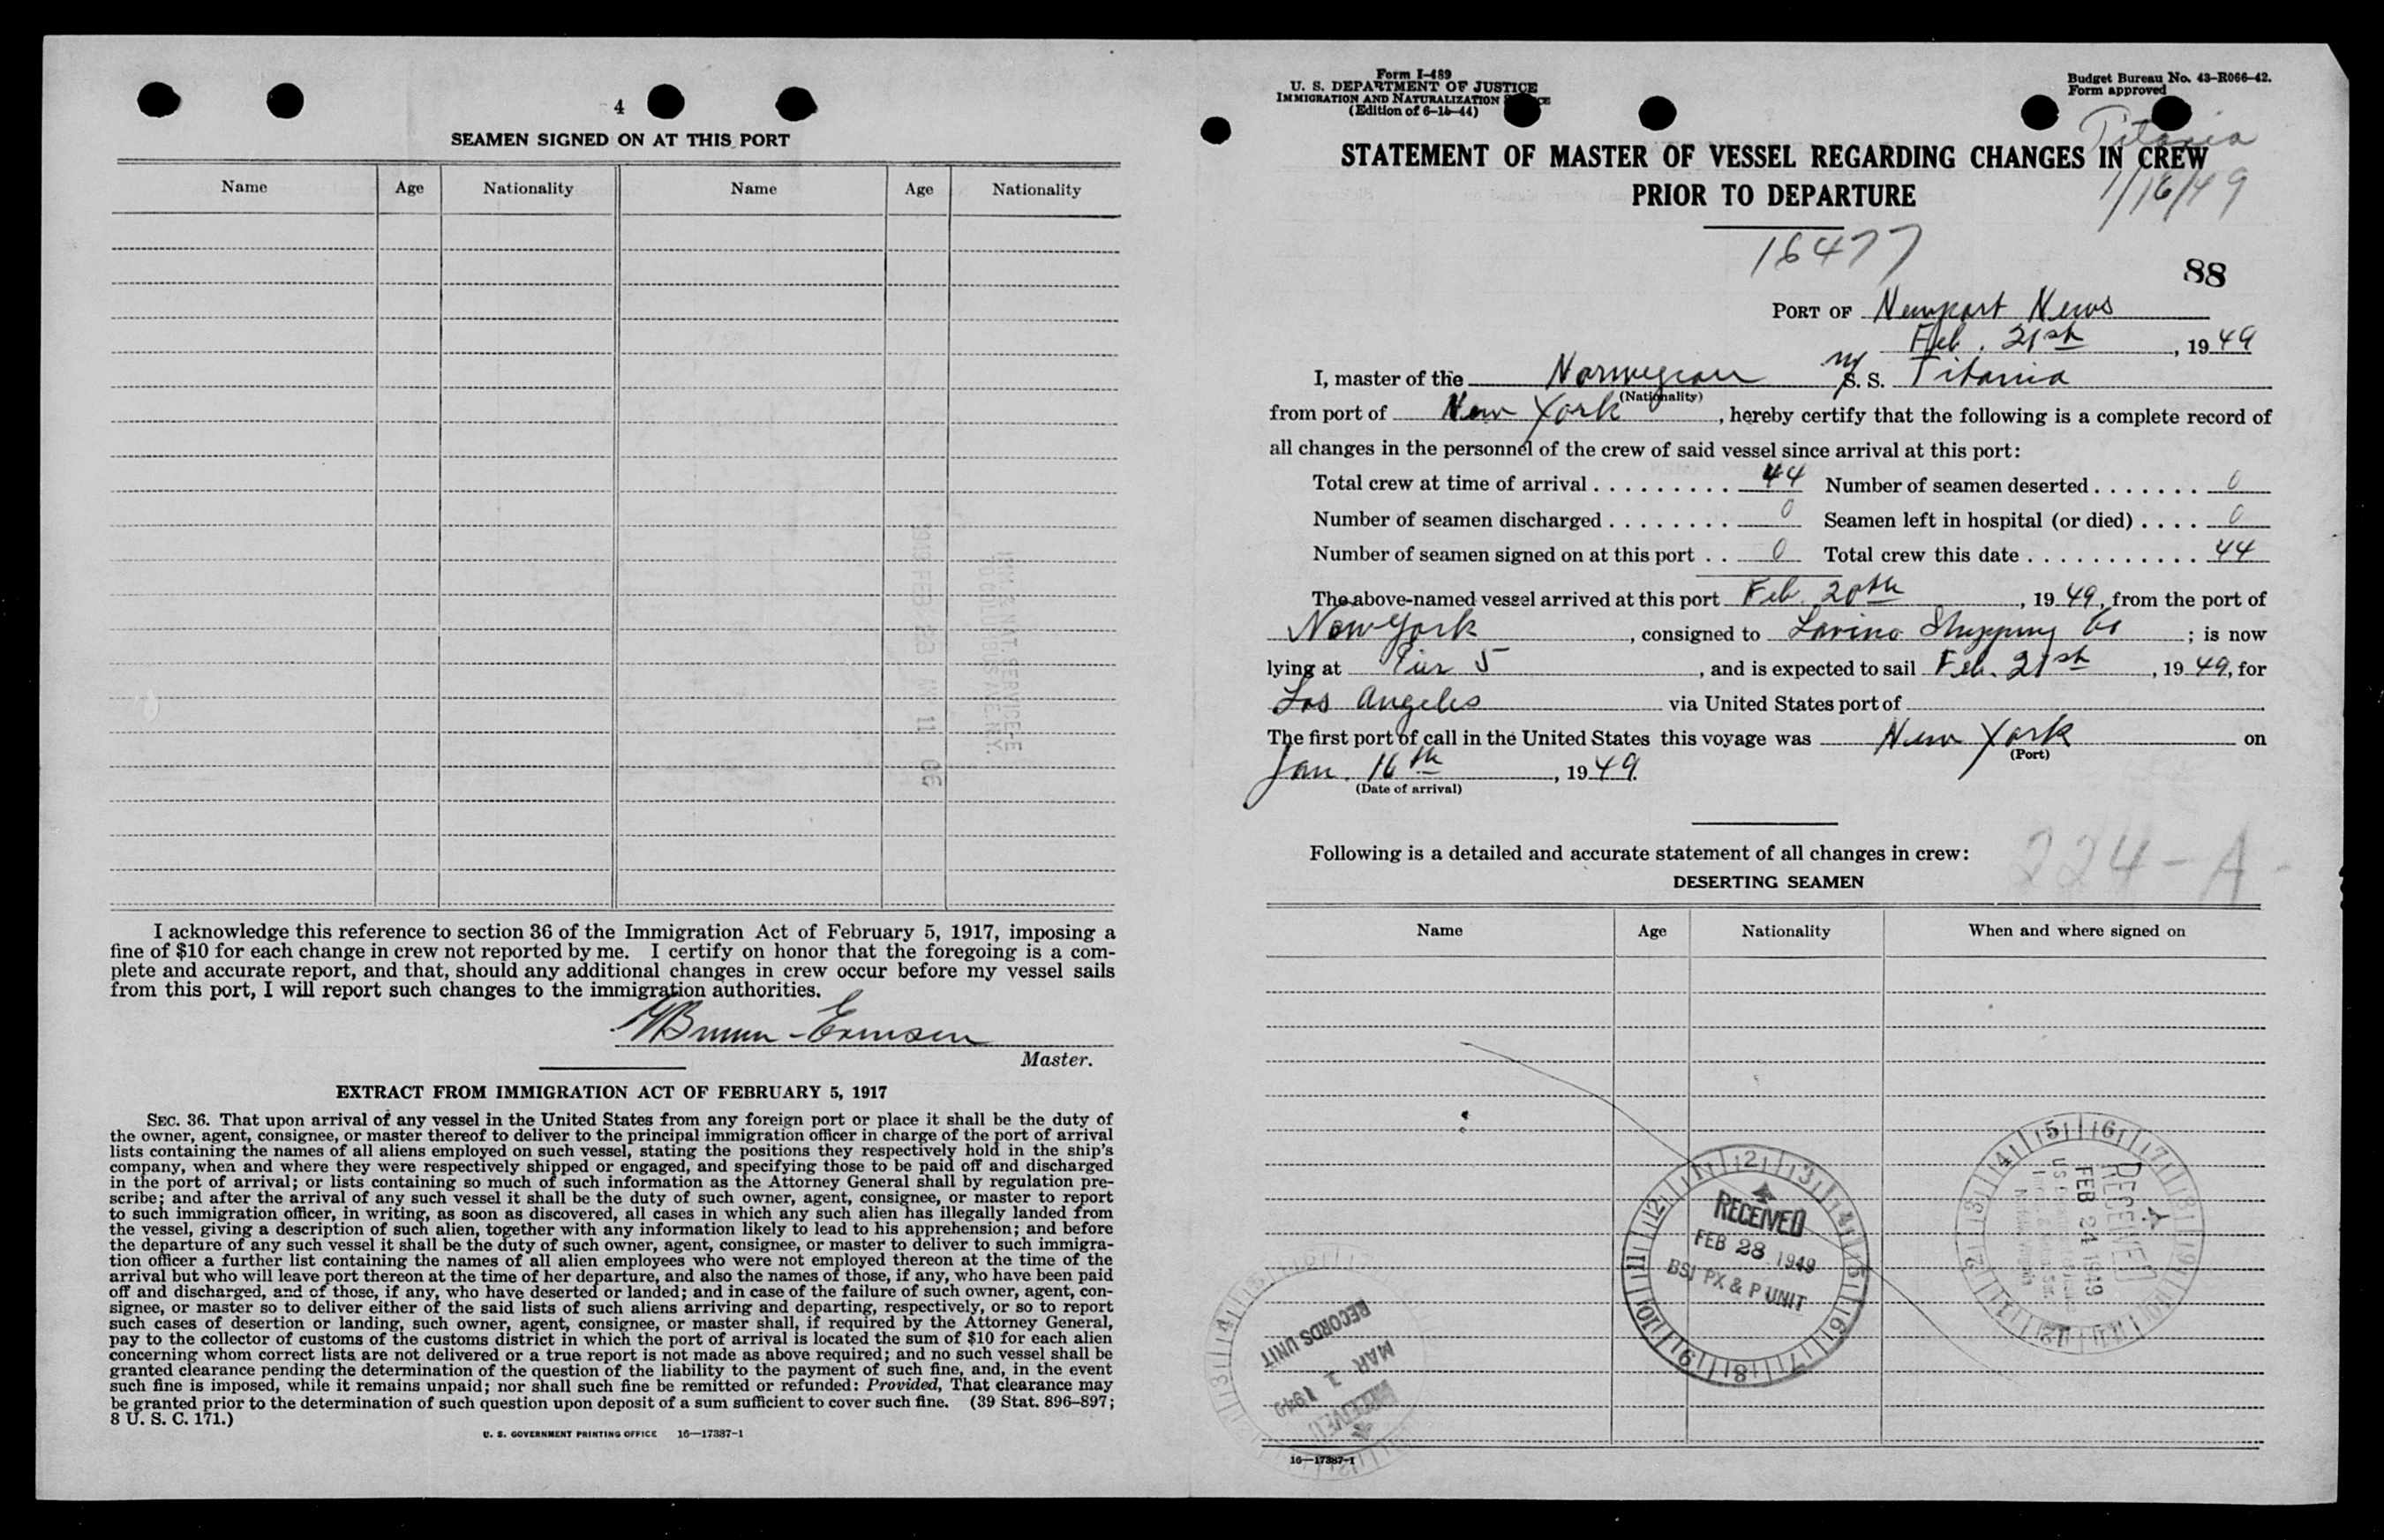 4
SEAMEN SIGNED ON AT THIS PORT
Name Age Nationality Name Age Nationality
I acknowledge this reference to section 36 of the Immigration Act of February 5, 1917, imposing a
fine of $10 for each change in crew not reported by me. I certify on honor that the foregoing is a com-
plete and accurate report, and that, should any additional changes in crew occur before my vessel sails
from this port, I will report such changes to the immigration authorities.
Master.
EXTRACT FROM IMMIGRATION ACT OF FEBRUARY 5, 1917
SEC. 36. That upon arrival of any vessel in the United States from any foreign port or place it shall be the duty of
the owner, agent, consignee, or master thereof to deliver to the principal immigration officer in charge of the port of arrival
lists containing the names of all aliens employed on such vessel, stating the positions they respectively hold in the ship's
company, when and where they were respectively shipped or engaged, and specifying those to be paid off and discharged
in the port of arrival; or lists containing so much of such information as the Attorney General shall by regulation pre-
scribe; and after the arrival of any such vessel it shall be the duty of such owner, agent, consignee, or master to report
to such immigration officer, in writing, as soon as discovered, all cases in which any such alien has illegally landed from
the vessel, giving a description of such alien, together with any information likely to lead to his apprehension; and before
the departure of any such vessel it shall be the duty of such owner, agent, consignee, or master to deliver to such immigra-
tion officer a further list containing the names of all alien employees who were not employed thereon at the time of the
arrival but who will leave port thereon at the time of her departure, and also the names of those, if any, who have been paid
off and discharged, and of those, if any, who have deserted or landed; and in case of the failure of such owner, agent, con-
signee, or master so to deliver either of the said lists of such aliens arriving and departing, respectively, or so to report
such cases of desertion or landing, such owner, agent, consignee, or master shall, if required by the Attorney General,
pay to the collector of customs of the customs district in which the port of arrival is located the sum of $10 for each alien
concerning whom correct lists are not delivered or a true report is not made as above required; and no such vessel shall be
granted clearance pending the determination of the question of the liability to the payment of such fine, and, in the event
such fine is imposed, while it remains unpaid; nor shall such fine be remitted or refunded: Provided, That clearance may
be granted prior to the determination of such question upon deposit of a sum sufficient to cover such fine. (39 Stat. 896–897;
8 U. S. C. 171.)
U. S. GOVERNMENT PRINTING OFFICE 16—17387-1
Form I-489
U. S. DEPARTMENT OF JUSTICE
IMMIGRATION AND NATURALIZATION
(Edition of 6-15-44)
Budget Bureau No. 43-R066-42.
Form approved
Titania
1/16/49
STATEMENT OF MASTER OF VESSEL REGARDING CHANGES IN CREW
PRIOR TO DEPARTURE
16477
88
PORT OF Newport News
Feb. 21st, 1949
I, master of the Norwegian M/S. S. Titania
(Nationality)
from port of New York, hereby certify that the following is a complete record of
all changes in the personnel of the crew of said vessel since arrival at this port:
Total crew at time of arrival 44 Number of seamen deserted 0
Number of seamen discharged 0 Seamen left in hospital (or died) 0
Number of seamen signed on at this port 0 Total crew this date 44
The above-named vessel arrived at this port Feb. 20th, 1949, from the port of
New York, consigned to Lavino Shipping Co; is now
lying at Pier 5, and is expected to sail Feb. 21st, 1949, for
Los Angeles via United States port of
The first port of call in the United States this voyage was New York on
(Port)
Jan. 16th, 1949.
(Date of arrival)
Following is a detailed and accurate statement of all changes in crew:
224-A-
DESERTING SEAMEN
Name Age Nationality When and where signed on
RECEIVED
FEB 28 1949
BSI PX & P UNIT
RECEIVED
FEB 24 1949
RECORDS UNIT
MAR 1 1949
RECEIVED
16—17387-1